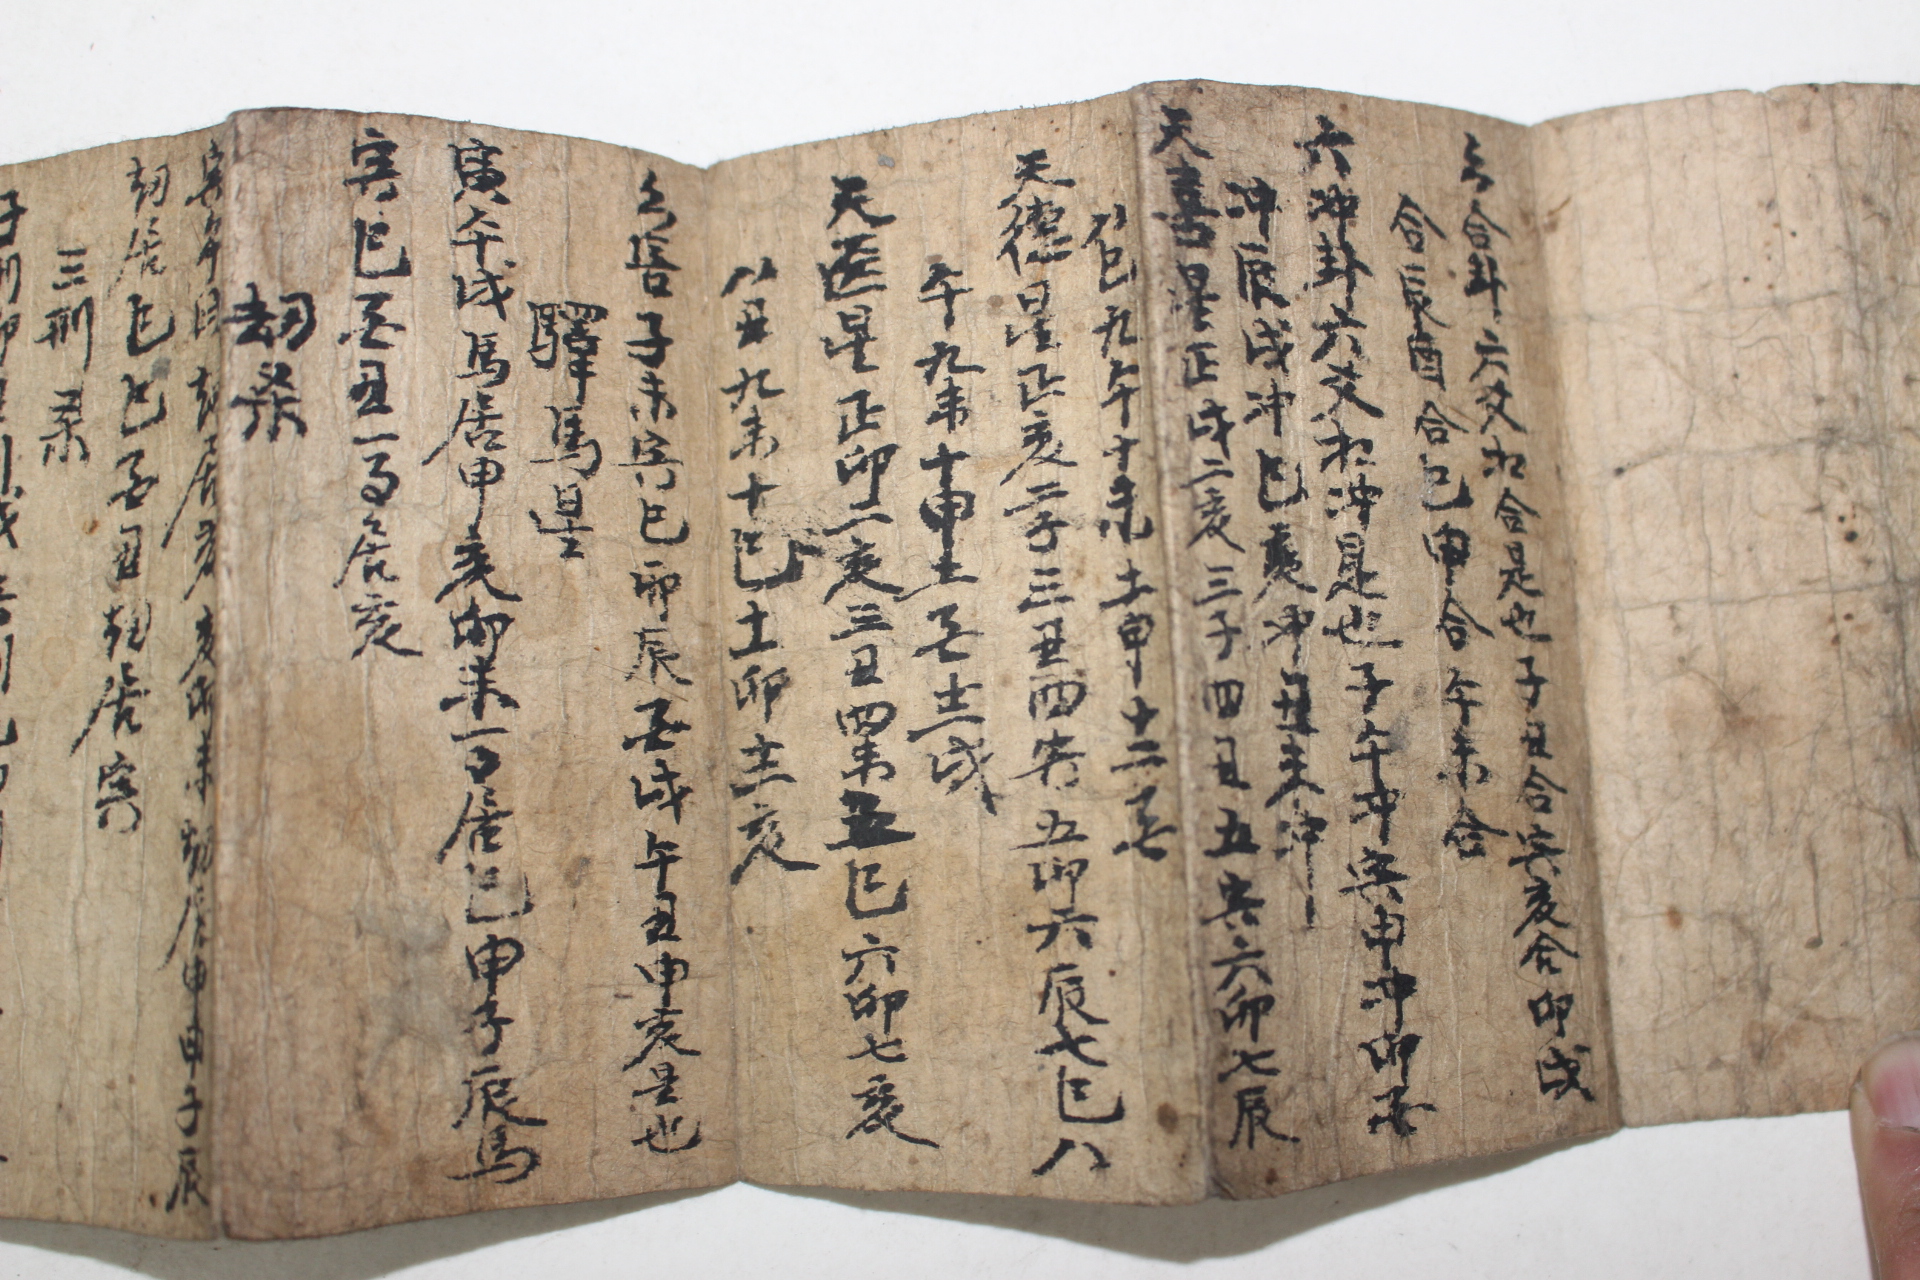 六合卦六爻相合是也子丑合寅亥合卯戌
合辰酉合巳申合午未合
六冲卦六爻相冲是也子午冲寅申冲卯酉
冲辰戌冲巳亥冲丑未冲
天喜星正戌二亥三子四丑五寅六卯七辰
八巳九午十未土申十二酉
天德星正亥二子三丑四寅五卯六辰七巳八
午九未十申土酉十二戌
天医星正卯二亥三丑四未五巳六卯七亥
八丑九未十巳土卯十二亥
六害子未寅巳卯辰酉戌午丑申亥是也
驛馬星
寅午戌馬居申亥卯未馬居巳申子辰馬
寅巳酉丑馬居亥
劫杀
寅午戌劫居亥亥卯未劫居申申子辰
劫居巳巳酉丑劫居寅
三刑杀